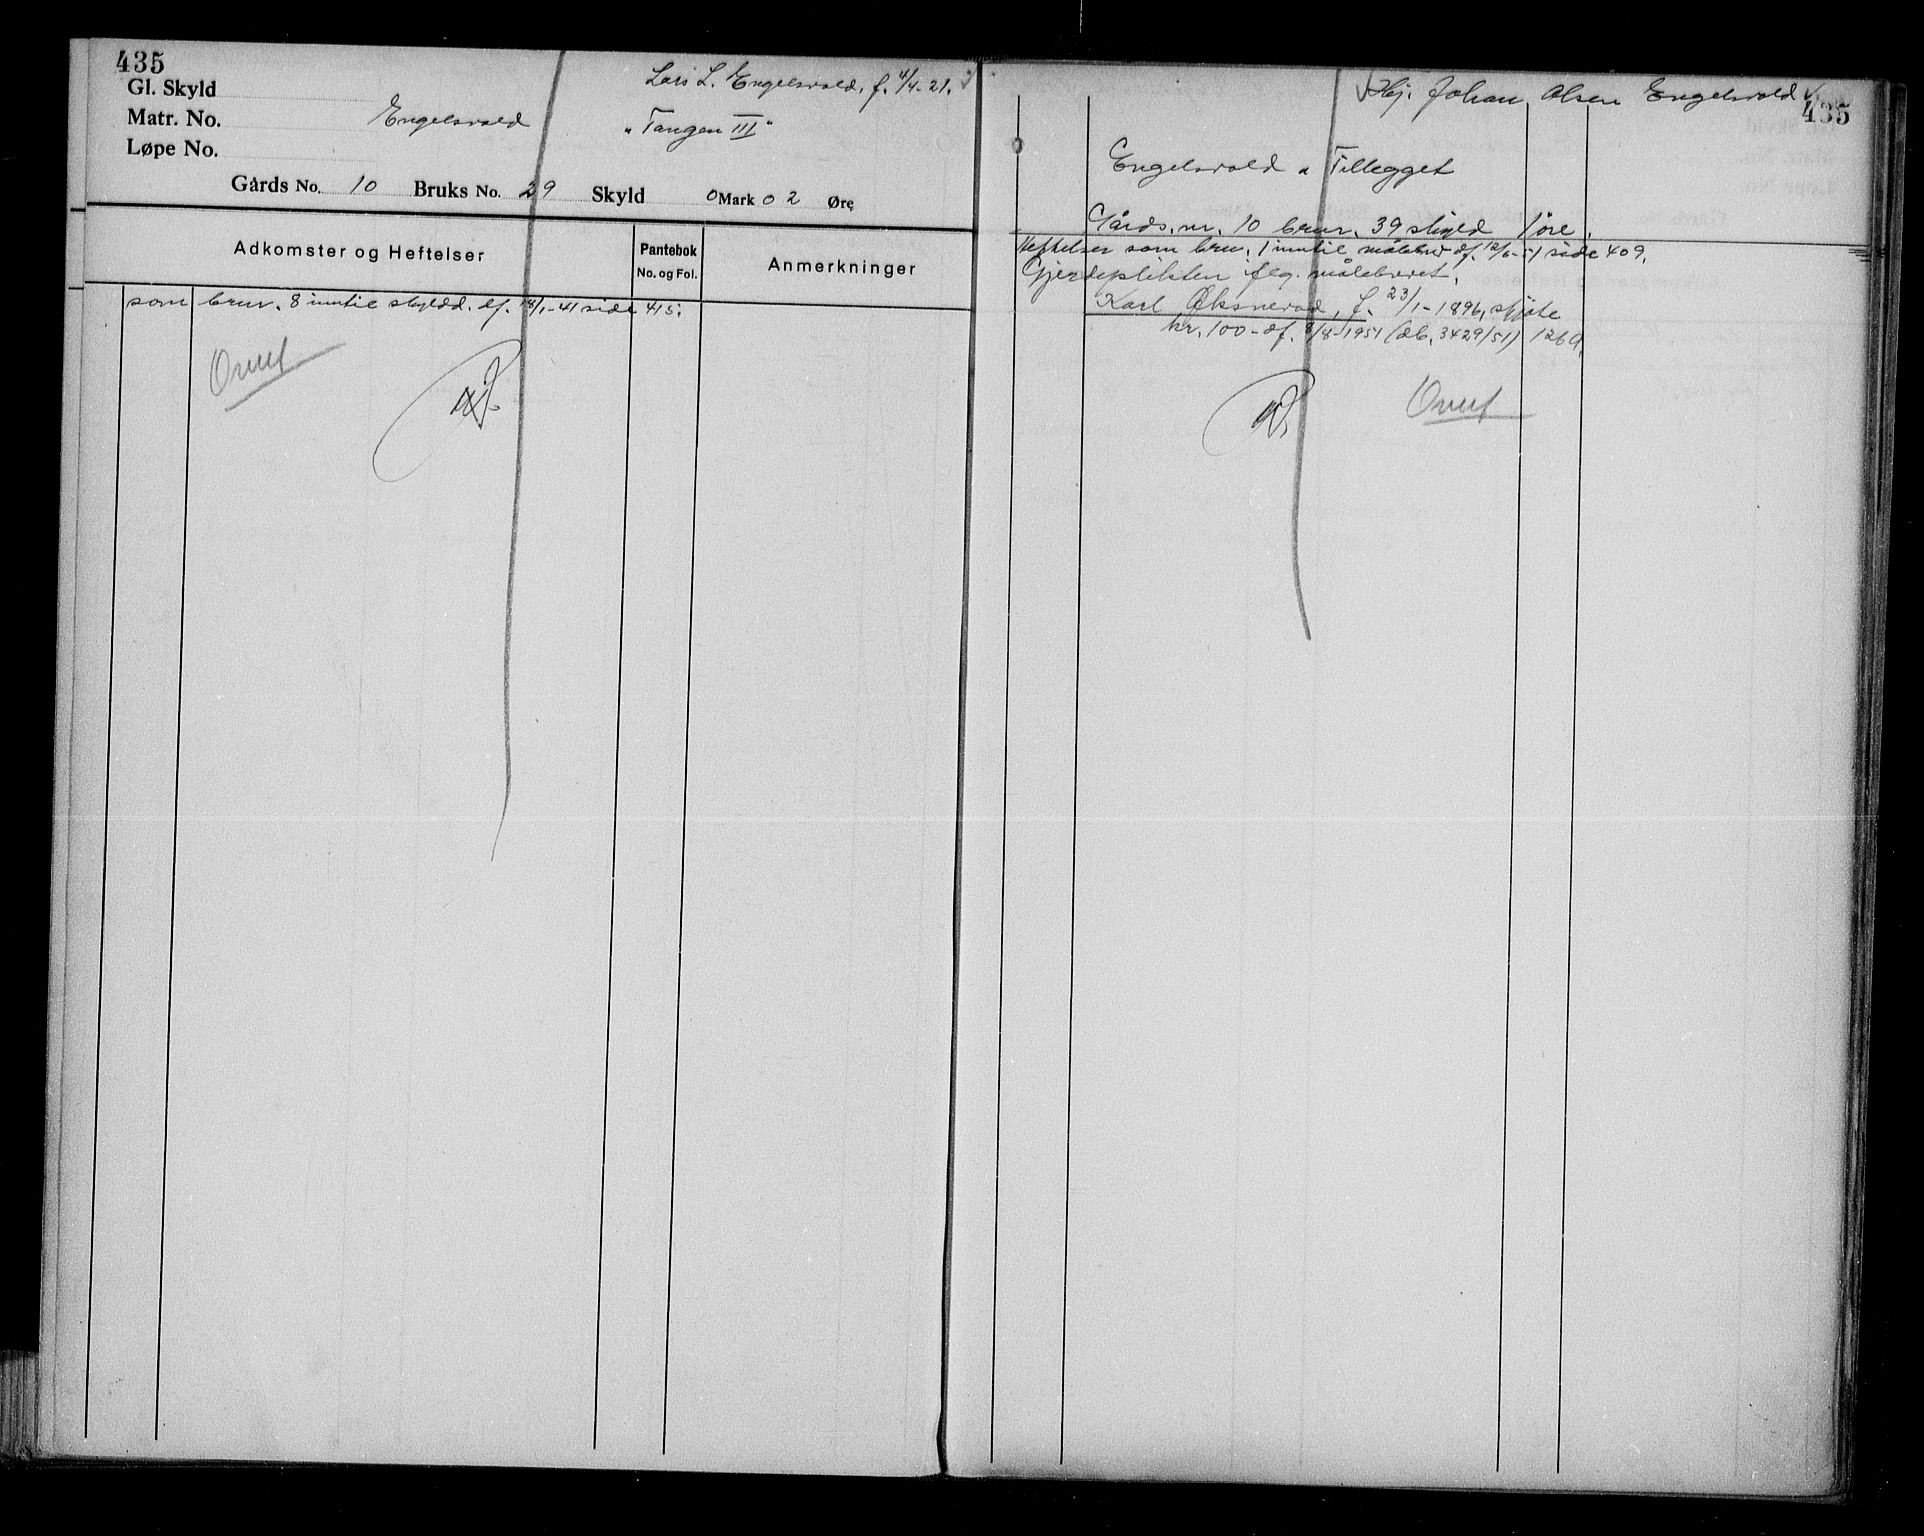 435
Gl. Skyld
Lars L. Engelsvold, f. 4/4-21.
Matr. No.
Engelsvold "Tangen III"
Løpe No.
Gårds No. 10 Bruks No. 29 Skyld 0 Mark 02 Øre
Adkomster og Heftelser
Pantebok
No. og Fol.
Anmerkninger
som brnr. 8 inntil skyldd. df. 18/1-41 side 415.
Overf
Hbj. Johan Olsen Engelsvold
435
Engelsvold " Tillegget
Gårds.nr. 10 brnr. 39 skyld 1 øre.
Heftelser som brnr. 1 inntil målebrev df. 12/6-51 side 409.
Gjerdeplikten flg. målebrevet.
Karl Øksnevad, f. 23/1-1896, skjøte
kr. 100- df. 8/8-1951 (db. 3429/51) 126a.
Overf